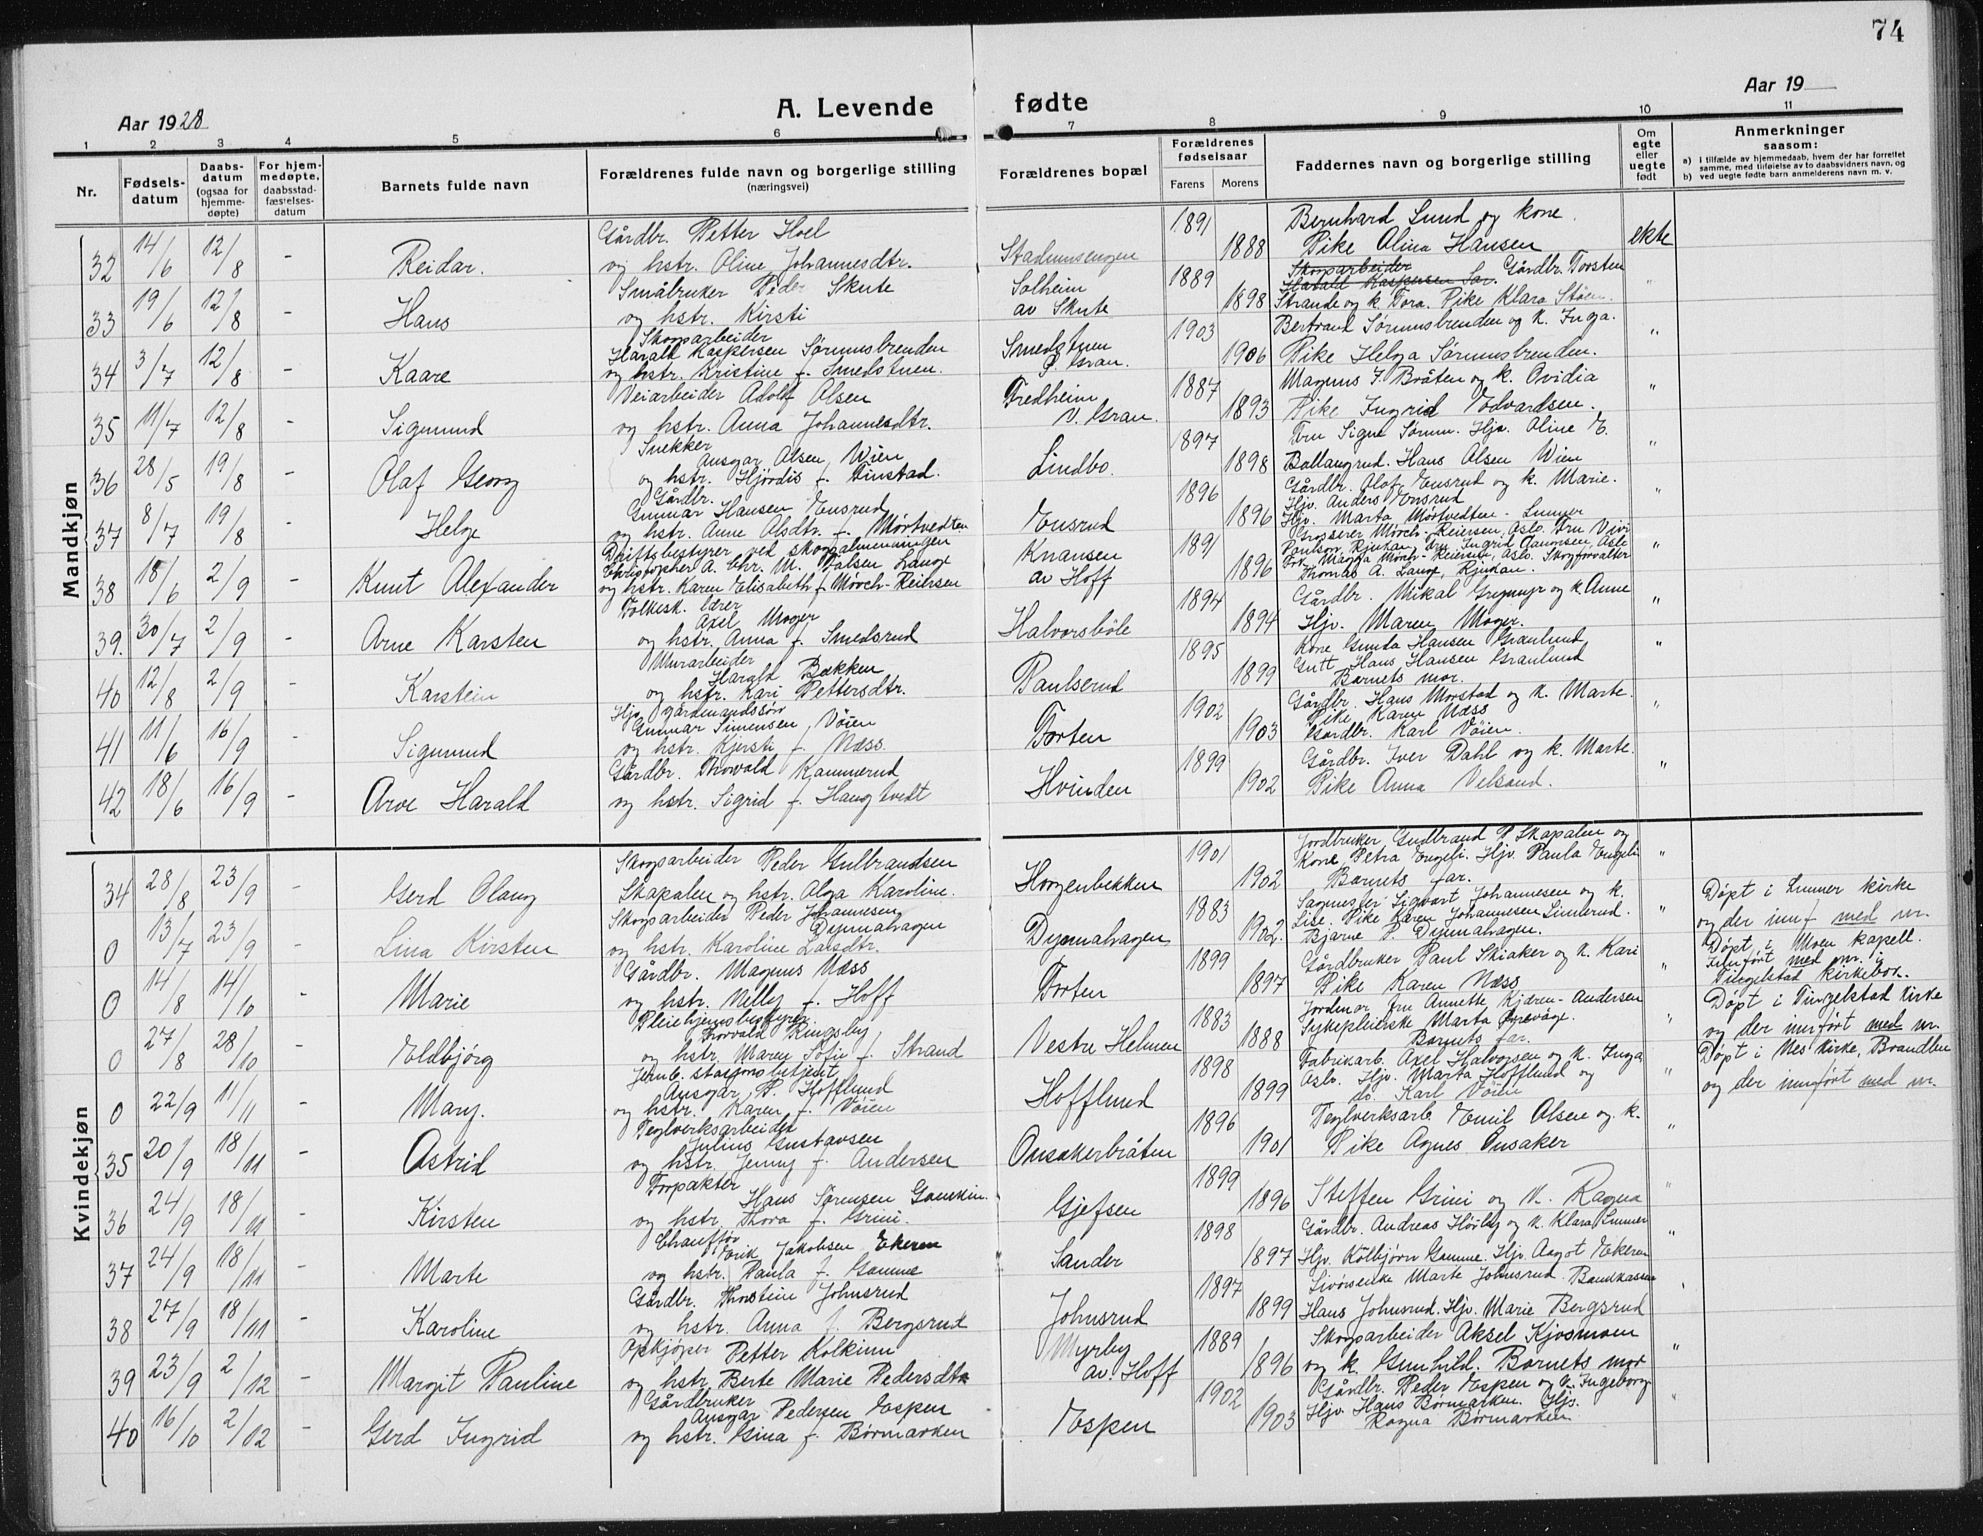 74
Aar 1928
A. Levende fødte
Aar 19
1 2 3 4 5 6 7 8 9 10 11
Nr.
Fødsels-datum
Daabs-datum (ogsaa for hjemme-døpte)
For hjem-medøpte, daabsstad-fæstelses-datum
Barnets fulde navn
Forældrenes fulde navn og borgerlige stilling (næringsvei)
Forældrenes bopæl
Forældrenes fødselsaar
Farens Morens
Faddernes navn og borgerlige stilling
Om egte eller uegte født
Anmerkninger saasom:
a) I tilfælde av hjemmedaab, hvem der har forrettet samme, med tilføielse av to daabsvidners navn, og
b) ved uegte fødte barn anmelderens navn m. v.
Mandkjøn
32 14/6 12/8 - Reidar. Gårdbr. Petter Hoel 1891 Bernhard Lund og kone.
og hstr. Oline Johannesdtr. 1888 Pike Alina Hansen ekte
33 19/6 12/8 - Hans Småbruker Peder Skute Solheim 1889 Skogsarbeider Gårdbr. Torsten
og hstr. Kirsti av Skute 1898 Strande og k. Tora. Pike Klara Støen. "
34 3/7 12/8 - Kaare Skogsarbeider
Harald Kaspersen Sørumsbrenden Smedstuen 1903 Bertrand Sørumsbrenden og k. Inga.
og hstr. Kristine f. Smedstuen. Gran. 1906 Pike Helga Sørumsbrenden. "
35 11/7 12/8 - Sigmund Veiarbeider Adolf Olsen Fredheim 1887 Magnus J. Bråten og k. Ovidia
og hstr. Anna Johannesdtr. v. Gran. 1893 Pike Ingrid Edvardsen. "
36 28/5 19/8 - Olaf Georg Snekker
Ansgar Olsen Wien Lindbo. 1897 Fru Signe Sørum. Hjv. Oline E.
og hstr. Hjørdis f. Tinstad. 1898 Ballangrud. Hans Olsen Wien "
37 8/7 19/8 - Helge Gårdbr.
Gunnar Hansen Ensrud Ensrud 1896 Gårdbr. Olaf Ensrud og k. Marie.
Hjv. Anders Ensrud
og hstr. Anne Olsdtr. f. Mørtvedten 1896 Hjv. Marta Mørtvedten - Lunner "
38 18/6 2/9 - Knut Alexander Driftsbestyrer ved skogalmenningen
Christopher A. Chr. M. Lange Knansen 1891 Grosserer Mørch-Reiersen, Oslo.
og hstr. Karen Elisabeth f. Mørch-Reiersen av Hoff 1896 Thomas A. Lange, Rjukan. "
39. 30/7 2/9 - Arne Karsten Folkesk. lærer
Axel Moger Halvorsbøle 1894 Gårdbr. Mikal Grymyr og k. Anne
og hstr. Anna f. Smedsrud 1894 Hjv. Maren Moger. "
40 12/8 2/9 - Karstein Murarbeider
Harald Bækken Paulserud 1895 Kone Gunda Hansen Granlund
Gutt Hans Hansen Granlund
og hstr. Kari Pettersdtr. 1899 Barnets mor. "
41 11/6 16/9 - Sigmund Hjv. gårdmandssøn
Gunnar Simensen Vøien Torten 1902 Gårdbr. Hans Morstad og k. Marte.
Pike Karen Næss
og hstr. Kjersti f. Næss. 1903 Gårdbr. Karl Vøien. "
42 18/6 16/9 - Arve Harald Gårdbr. Thorvald Kammerud Hvinden 1899 Gårdbr. Iver Dahl og k. Marte.
og hstr. Sigrid f. Haugtvedt 1902 Pike Anna Velsand. "
Kvindekjøn
34 28/8 23/9 - Gerd Olaug Skogsarbeider Peder Gulbrandsen Horgenbekken 1901 Jordbruker Gudbrand P. Skapalen og
Kone Petra Engeli. Hjv. Paula Engeli
Skapalen og hstr. Olga Karoline. 1902 Barnets far. "
0 13/7 23/9 - Lina Kirsten Skogsarbeider Peder Johannesen
Dynnahagen Dynnahagen 1883 Sagmester Sigvart Johannesen og k.
Lise. Pike Karen Johannesen Linderud.
og hstr. Karoline Larsdtr. 1902. Bjarne P. Dynnahagen. " Døpt i Lunner kirke
og der innf. med nr.
0 14/8 14/10 - Marie Gårdbr. Magnus Næss Torten 1899 Gårdbruker Paul Skiaker og k. Kari
og hstr. Nelly f. Hoff 1897 Pike Karen Næss " Døpt i Moen kapell.
Innført med nr. i
Tingelstad kirkebok.
0 27/8 28/10 - Eldbjørg Pleiehjemsbestyrer
Thorvald Ringsby Vestre Helmen 1883 Jordmor fru Annette Kjæren-Andersen
Sykepleierske Marta
og hstr. Maren Sofie f. Strand 1888 Barnets far. " Døpt i Tingelstad kirke
og der innført med nr.
0 22/9 11/11 - Mary. Jernb. stasjonsbetjent
Ansgar P. Hofflund Hofflund 1898 Fabrikarb. Axel Halvorsen og k. Inga
Oslo. Hjv. Marta Hofflund og
og hstr. Karen f. Vøien 1899 do. Karl Vøien " Døpt i Nes kirke, Brandbu
og der innført med nr.
35 20/9 18/11 - Astrid Teglverksarbeider
Julius Gustavsen Onsakerbråten 1896 Teglverksarb Emil Olsen og k.
og hstr. Jenny f. Andersen 1901 Pike Agnes Onsaker "
36 24/9 18/11 - Kirsten Forpakter
Hans Sørensen Ganskin. Gjefsen 1899
og hstr. Thora f. Grini. 1896 Steffen Grini og k. Ragna "
37 24/9 18/11 - Marte Chauffør
Erik Jakobsen Ekeren Sander 1898 Gårdbr. Andreas Høilby og k. Klara Lunner
og hstr. Paula f. Gamme 1897 Hjv. Kolbjørn Gamme. Hjv. Aagot Ekeren "
38 27/9 18/11 - Karoline Gårdbr. Thorstein Johnsrud Johnsrud 1897 Livørenke Marte Johnsrud.
og hstr. Anna f. Bergsrud 1899 Hans Johnsrud. Hjv. Marie Bergsrud "
39 23/9 2/12 - Margit Pauline Opkjøper Petter Kolkinn Myrby 1889 Skogsarbeider Aksel Kjosmoen
og hstr. Berte Marie Pedersdtr av Hoff 1896 og k. Gunhild. Barnets mor "
40 16/10 2/12 - Gerd Ingrid Gårdbruker
Ansgar Pedersen Espen Espen 1902 Gårdbr. Peder Espen og k. Ingeborg
Hjv. Hans Børmarken. Hjv.
og hstr. Gina f. Børmarken 1903 Ragna Børmarken "